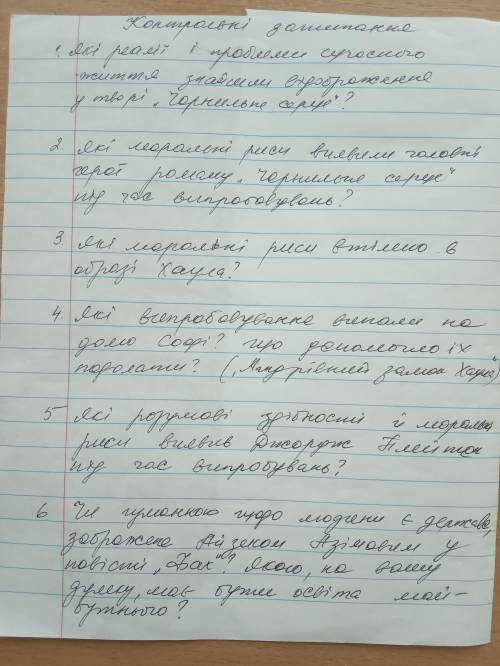 Контрольні запитання
1. Які реалії і проблеми сучасного
життя знайшли відображення
у творі „Чорнильне серце"?
2. Які моральні риси виявили головні
герої роману „Чорнильне серце"
під час випробовувань?
3. Які моральні риси втілено в
образі Хаула?
4. Які випробовування випали на
долю Софі? Що допомогло їх
подолати? („Мандрівний замок Хаула")
5 Які розумові здібності й моральні
риси виявив Джордж Плейтон
під час випробувань?
6 Чи гуманною щодо людини є держава,
зображена Айзеком Азімовим у
повісті „Фах"? Якою, на вашу
думку, має бути освіта май-
бутнього?